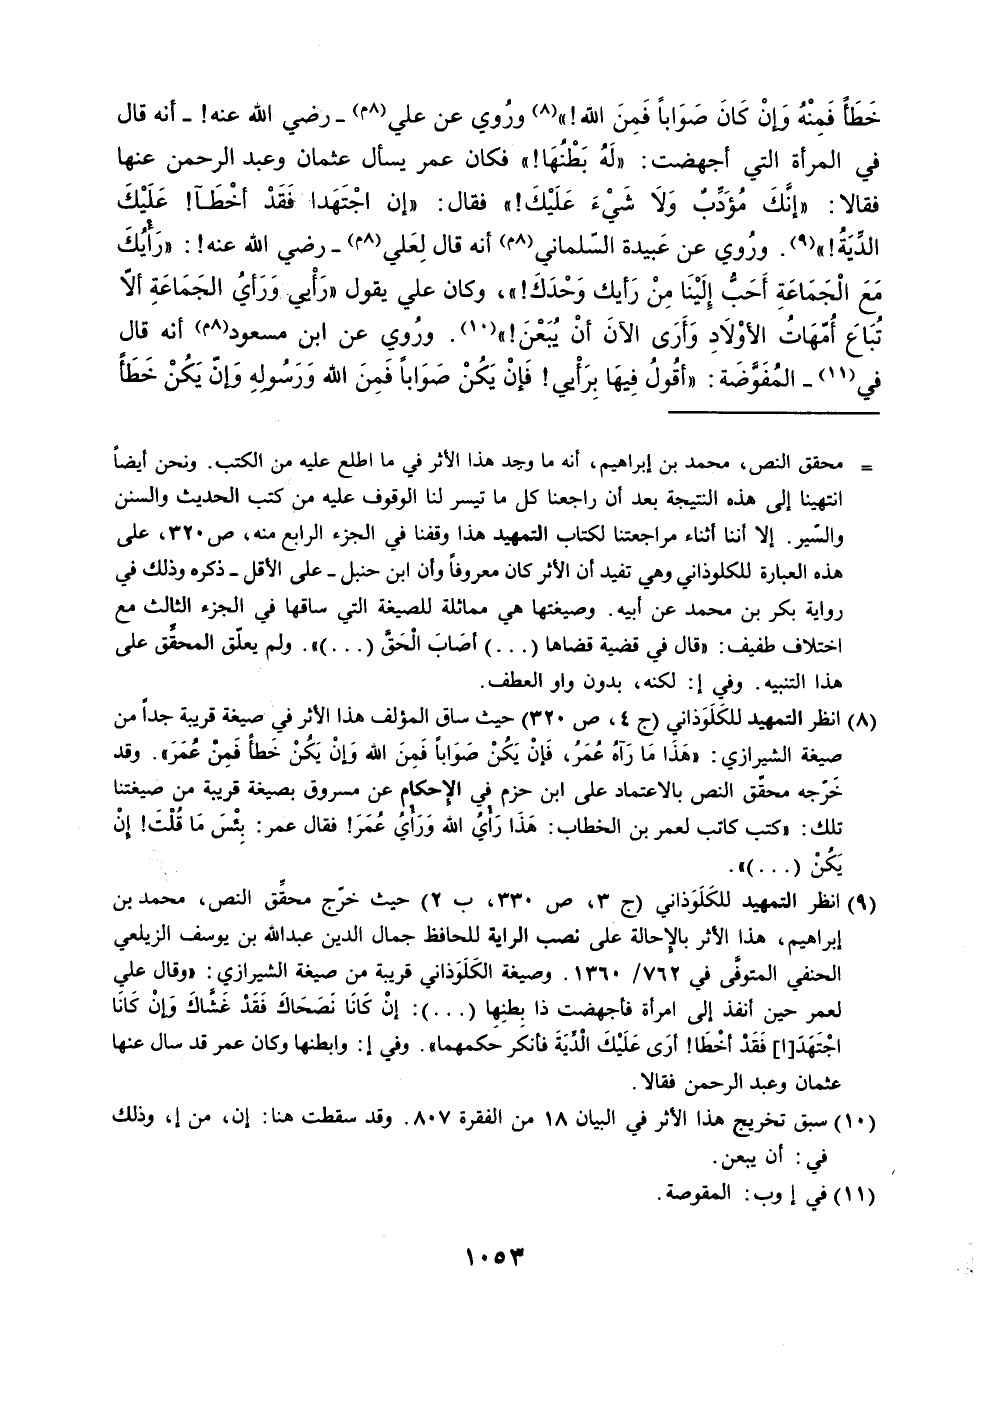 خَطَأً فَمِنْهُ وَإِنْ كَانَ صَوَاباً فَمِنَ الله!»(٨) ورُوي عن علي(٨م) ـ رضي الله عنه! ـ أنه قال
في المرأة التي أجهضت: «لَهُ بَطْنُهَا!» فكان عمر يسأل عثمان وعبد الرحمن عنها
فقالا: «إِنَّكَ مُؤَدِّبٌ وَلَا شَيْءَ عَلَيْكَ!» فقال: «إن اجْتَهَدا فَقَدْ أَخْطَـآ! عَلَيْكَ
الدِّيَةُ!»(٩). ورُوي عن عَبيدة السّلماني(٨م) أنه قال لِعَلي(٨م) ـ رضي الله عنه!: «رَأْيُكَ
مَعَ الْجَمَاعَةِ أَحَبُّ إِلَيْنَا مِنْ رَأيك وَحْدَكَ!»، وكان علي يقول «رَأْيي وَرَأيُ الجَمَاعَةِ ألاّ
تُبَاعَ أُمَّهَاتُ الأوْلَادِ وَأَرَى الآنَ أنْ يُبَعْنَ!»(١٠). ورُوي عن ابن مسعود(٨م) أنه قال
في(١١) ـ المُفَوَّضَة: «أقُولُ فِيهَا بِرَأْيي! فَإِنْ يَكُنْ صَوَاباً فَمِنَ الله وَرَسُولِهِ وَإِنّ يَكُنْ خَطَأً
= محقق النص، محمد بن إبراهيم، أنه ما وجد هذا الأثر في ما اطلع عليه من الكتب. ونحن أيضاً
انتهينا إلى هذه النتيجة بعد أن راجعنا كل ما تيسر لنا الوقوف عليه من كتب الحديث والسنن
والسّير. إلا أننا أثناء مراجعتنا لكتاب التمهيد هذا وقفنا في الجزء الرابع منه، ص٣٢٠، على
هذه العبارة للكلوذاني وهي تفيد أن الأثر كان معروفاً وأن ابن حنبل ـ على الأقل ـ ذكره وذلك في
رواية بكر بن محمد عن أبيه. وصيغتها هي مماثلة للصيغة التي ساقها في الجزء الثالث مع
اختلاف طفيف: «قال في قضية قضاها (...) أصَابَ الْحَقَّ (...)». ولم يعلّق المحقِّق على
هذا التنبيه. وفي إ: لكنه، بدون واو العطف.
(٨) انظر التمهيد للكَلَوَذاني (ج ٤، ص ٣٢٠) حيث ساق المؤلف هذا الأثر في صيغة قريبة جداً من
صيغة الشيرازي: «هَذَا مَا رَآهُ عُمَرُ، فَإِنْ يَكُنْ صَوَاباً فَمِنَ الله وَإِنْ يَكُنْ خَطأً فَمِنْ عُمَرَ». وقد
خَرّجه محقّق النص بالاعتماد على ابن حزم في الإحكام عن مسروق بصيغة قريبة من صيغتنا
تلك: «كتب كاتب لعمر بن الخطاب: هَذَا رَأْيُ الله وَرَأْيُ عُمَرَ! فقال عمر: بِئْسَ مَا قُلْتَ! إنْ
يَكُنْ (...)».
(٩) انظر التمهيد للكَلَوَذاني (ج ٣، ص ٣٣٠، ب ٢) حيث خرّج محقِّق النص، محمد بن
إبراهيم، هذا الأثر بالإحالة على نصب الراية للحافظ جمال الدين عبدالله بن يوسف الزيلعي
الحنفي المتوفَّى في ٧٦٢/ ١٣٦٠. وصيغة الكَلَوَذاني قريبة من صيغة الشيرازي: «وقال علي
لعمر حين أنفذ إلى امرأة فأجهضت ذا بطنِها (...): إنْ كَانَا نَصَحَاكَ فَقَدْ غَشَّاكَ وَإنْ كَانَا
اجْتَهَدَ[ا] فَقَدْ أخْطَا! أرَى عَلَيْكَ الدِّيَةَ فأنكر حكمهما». وفي إ: وابطنها وكان عمر قد سال عنها
عثمان وعبد الرحمن فقالا.
(١٠) سبق تخريج هذا الأثر في البيان ١٨ من الفقرة ٨٠٧. وقد سقطت هنا: إن، من إ، وذلك
في: أن يبعن.
(١١) في إ وب: المقوصة.
١٠٥٣